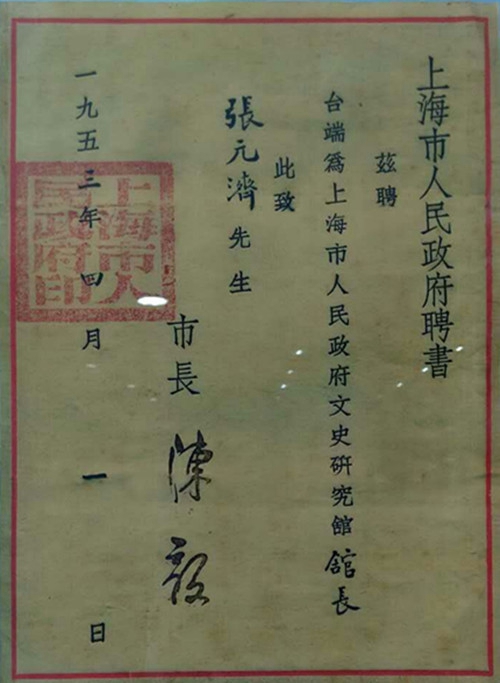 上海市人民政府聘書
茲聘
台端爲上海市人民政府文史研究館館長
此致
張元濟先生
市長 陳毅
一九五三年四月一日
上海市人民政府印